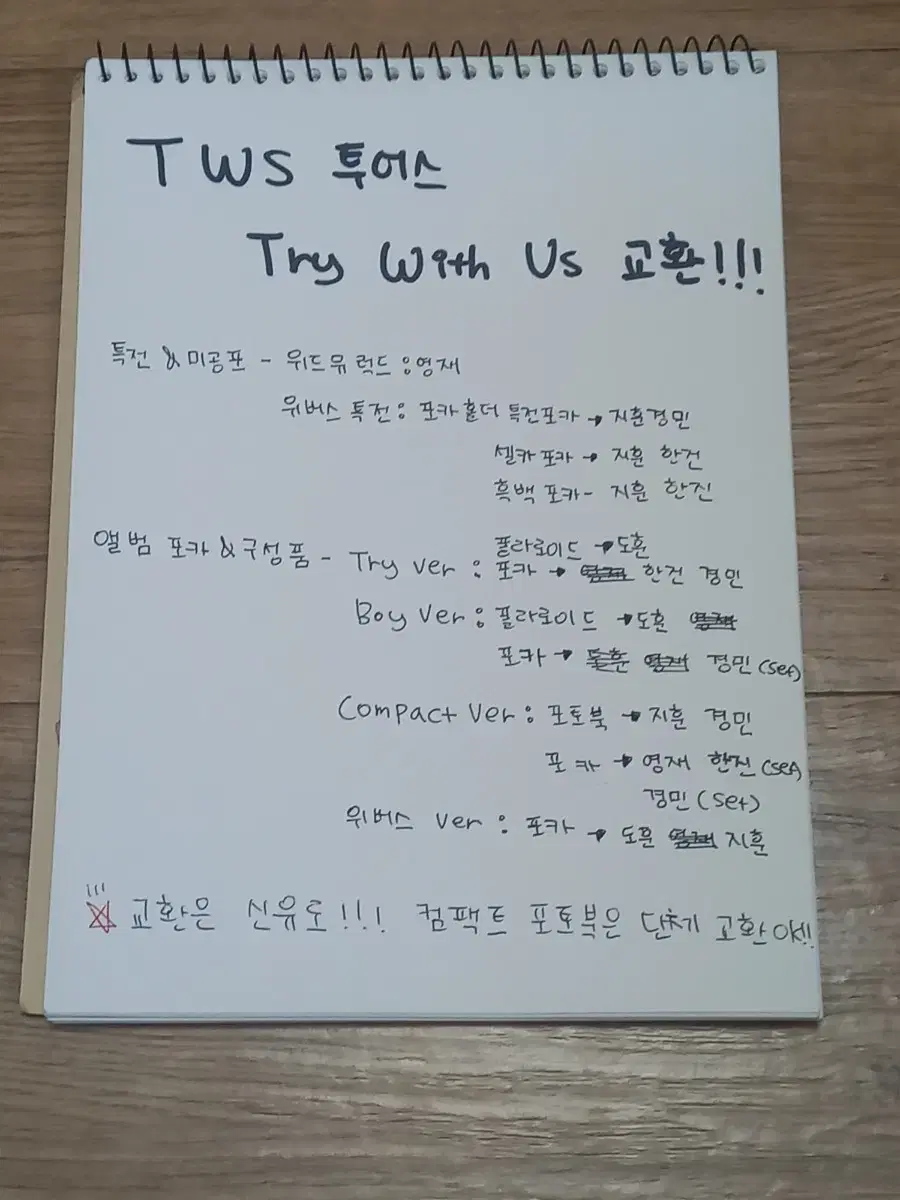 TWS 투어스
Try With Us 교환!!!
특전 & 미공포 - 위드뮤 럭드 : 영재
위버스 특전 : 포카홀더 특전포카 → 지훈경민
셀카 포카 → 지훈 한건
흑백 포카 - 지훈 한진
앨범 포카 & 구성품 - Try ver : 폴라로이드 → 도훈
포카 → 한건 경민
Boy Ver : 폴라로이드 → 도훈
포카 → 경민 (set)
Compact Ver : 포토북 → 지훈 경민
포카 → 영재 한진 (set)
경민 (set)
위버스 ver : 포카 → 도훈 지훈
!!! ☆ 교환은 신유로!!! 컴팩트 포토북은 단체 교환 OK!!